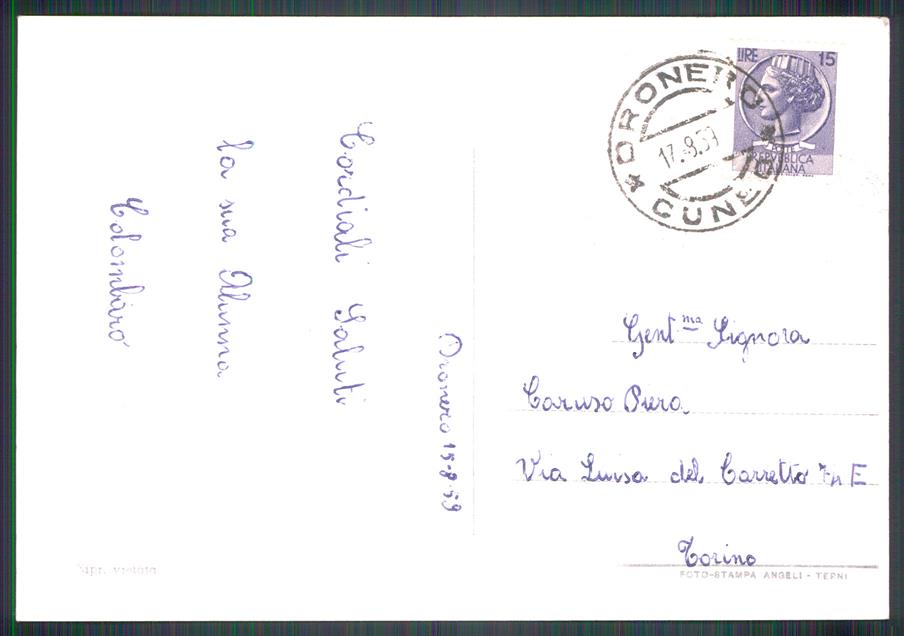 Dronero 15-8-59
Cordiali Saluti
la sua Alunna
Colombaro
Ripr. vietata
LIRE 15
POSTE
REPVBBLICA
ITALIANA
DRONERO
17.8.59
CUNEO
Gent.ma Signora
Caruso Piera
Via Luisa del Carretto 7n E
Torino
FOTO-STAMPA ANGELI - TERNI